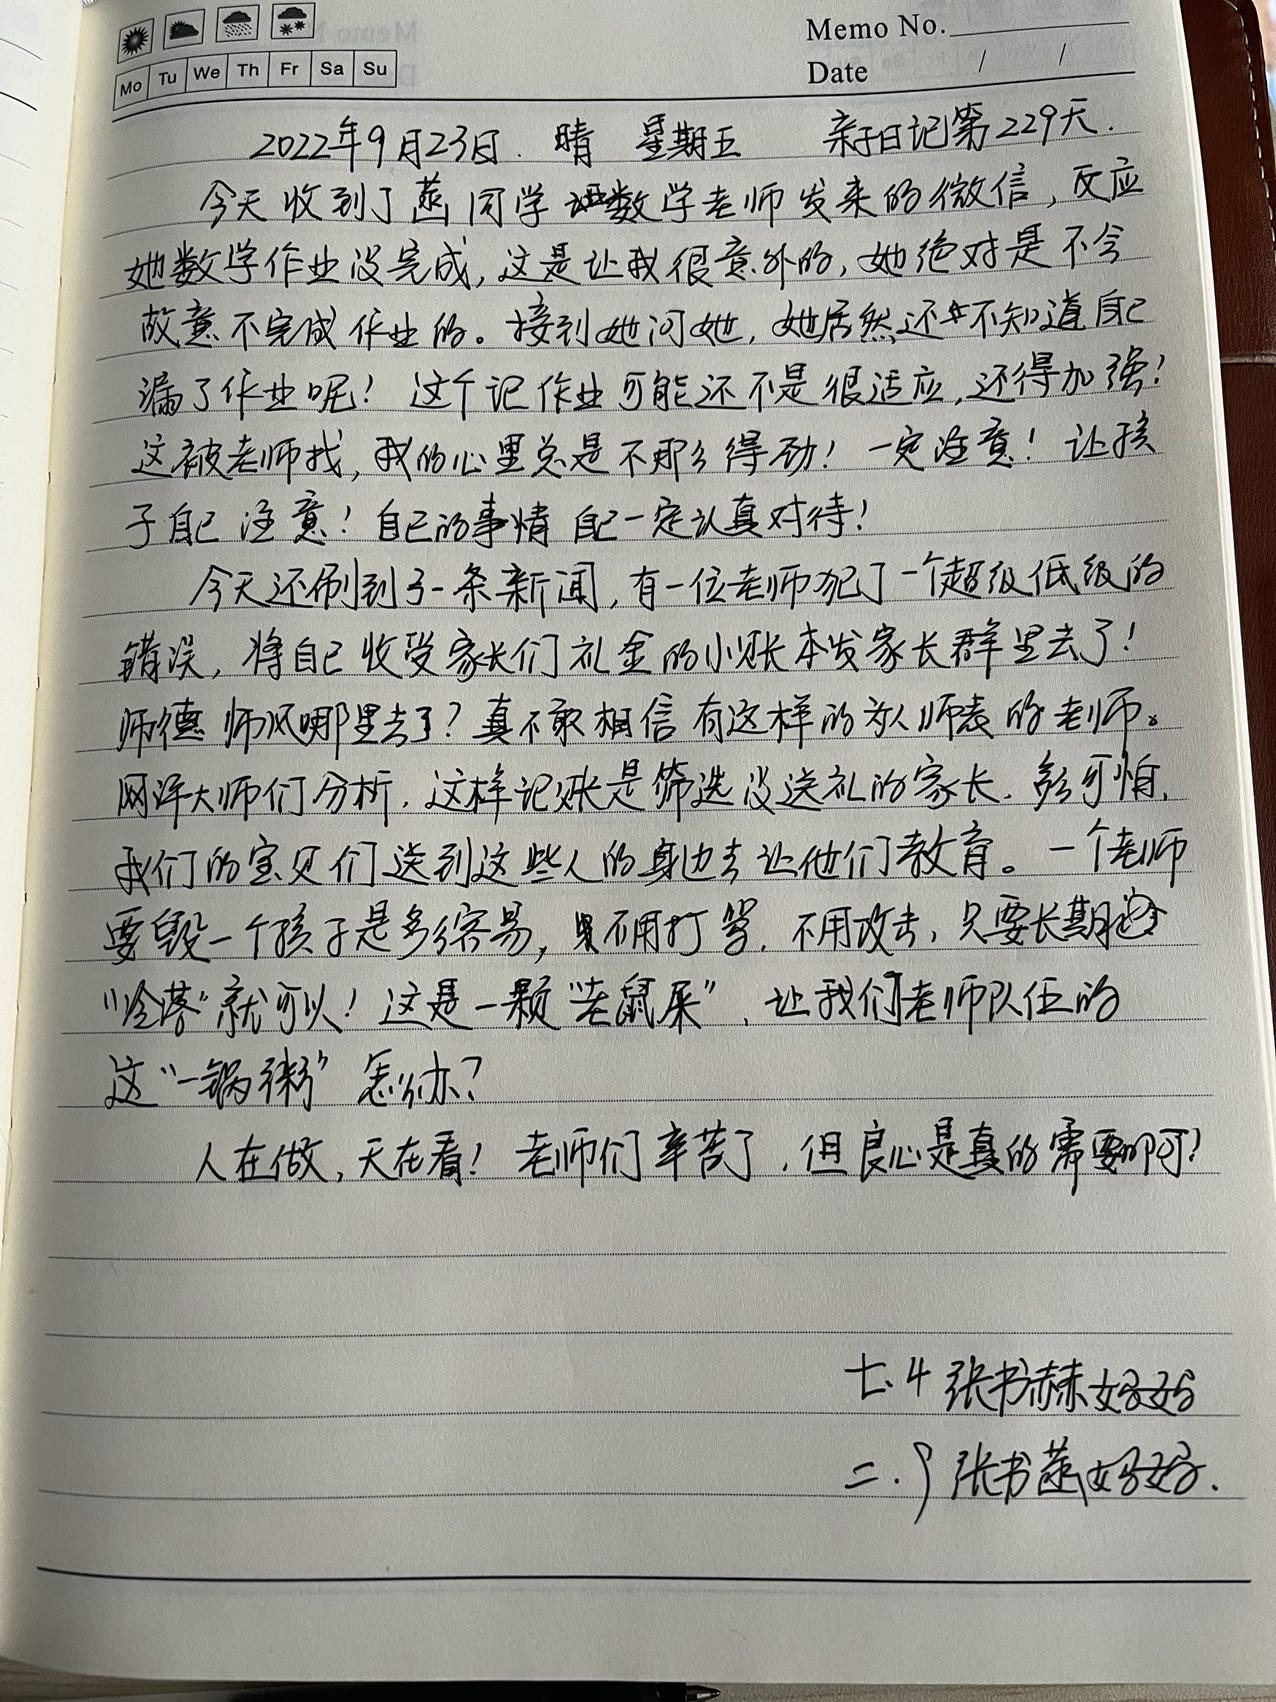 Memo No.
Mo Tu We Th Fr Sa Su
Date / /
2022年9月23日. 晴 星期五 亲子日记第229天.
今天收到了燕同学数学老师发来的微信,反应
她数学作业没完成,这是让我很意外的,她绝对是不会
故意不完成作业的。接到她问她,她居然还不知道自己
漏了作业呢!这个记作业可能还不是很适应,还得加强!
这被老师找,我的心里总是不那么得劲!一定注意!让孩
子自己注意!自己的事情自己一定认真对待!
今天还刷到了一条新闻,有一位老师犯了一个超级低级的
错误,将自己收受家长们礼金的小账本发家长群里去了!
师德师风哪里去了?真不敢相信有这样的为人师表的老师。
网评大师们分析,这样记账是筛选没送礼的家长.多可怕,
我们的宝贝们送到这些人的身边去让他们教育。一个老师
要毁一个孩子是多容易,不用打骂,不用攻击,只要长期
"冷落"就可以!这是一颗"老鼠屎",让我们老师队伍的
这"一锅粥"怎么办?
人在做,天在看!老师们辛苦了,但良心是真的需要啊!
七.4 张书赫妈妈
二.9 张书燕妈妈.